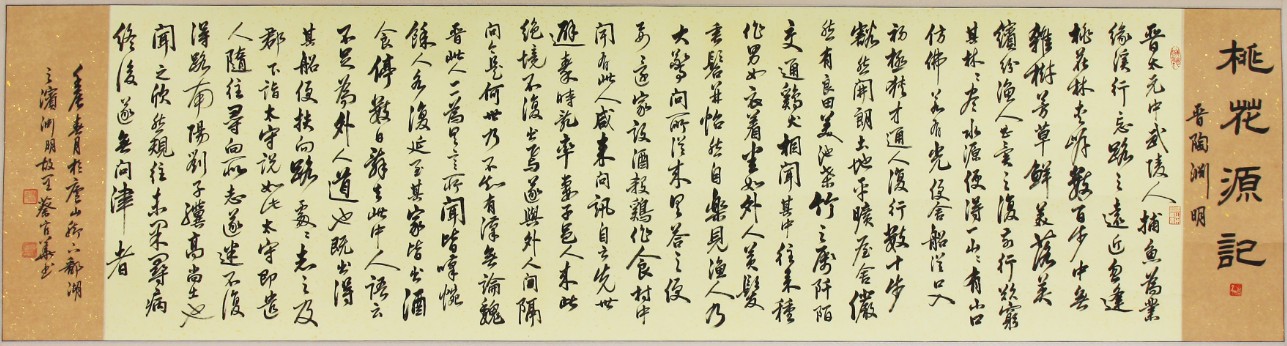 桃花源記
晋陶淵明
晋太元中武陵人捕魚為業
緣溪行忘路之遠近忽逢
桃花林夹岸數百步中無
雜樹芳草鮮美落英
繽紛漁人甚異之復前行欲窮
其林〻尽水源便得一山〻有小口
仿佛若有光便舍船從口入
初極狹才通人復行數十步
豁然開朗土地平曠屋舍儼
然有良田美池桑竹之屬阡陌
交通鷄犬相聞其中往来種
作男女衣着悉如外人黄髮
垂髫并怡然自樂見漁人乃
大驚問所從来具答之便
要還家設酒殺鷄作食村中
聞有此人咸来問訊自云先世
避秦時乱率妻子邑人来此
絶境不復出焉遂與外人間隔
問今是何世乃不知有漢無論魏
晋此人一一為具言所聞皆嘆惋
餘人各復延至其家皆出酒
食停數日辭去此中人語云
不足為外人道也既出得
其船便扶向路處〻志之及
郡下詣太守說如此太守即遣
人隨往尋向所志遂迷不復
得路南陽劉子驥高尚士也
聞之欣然規往未果尋病
終後遂無問津者
春月於廬山
之濱渊明故里蔡